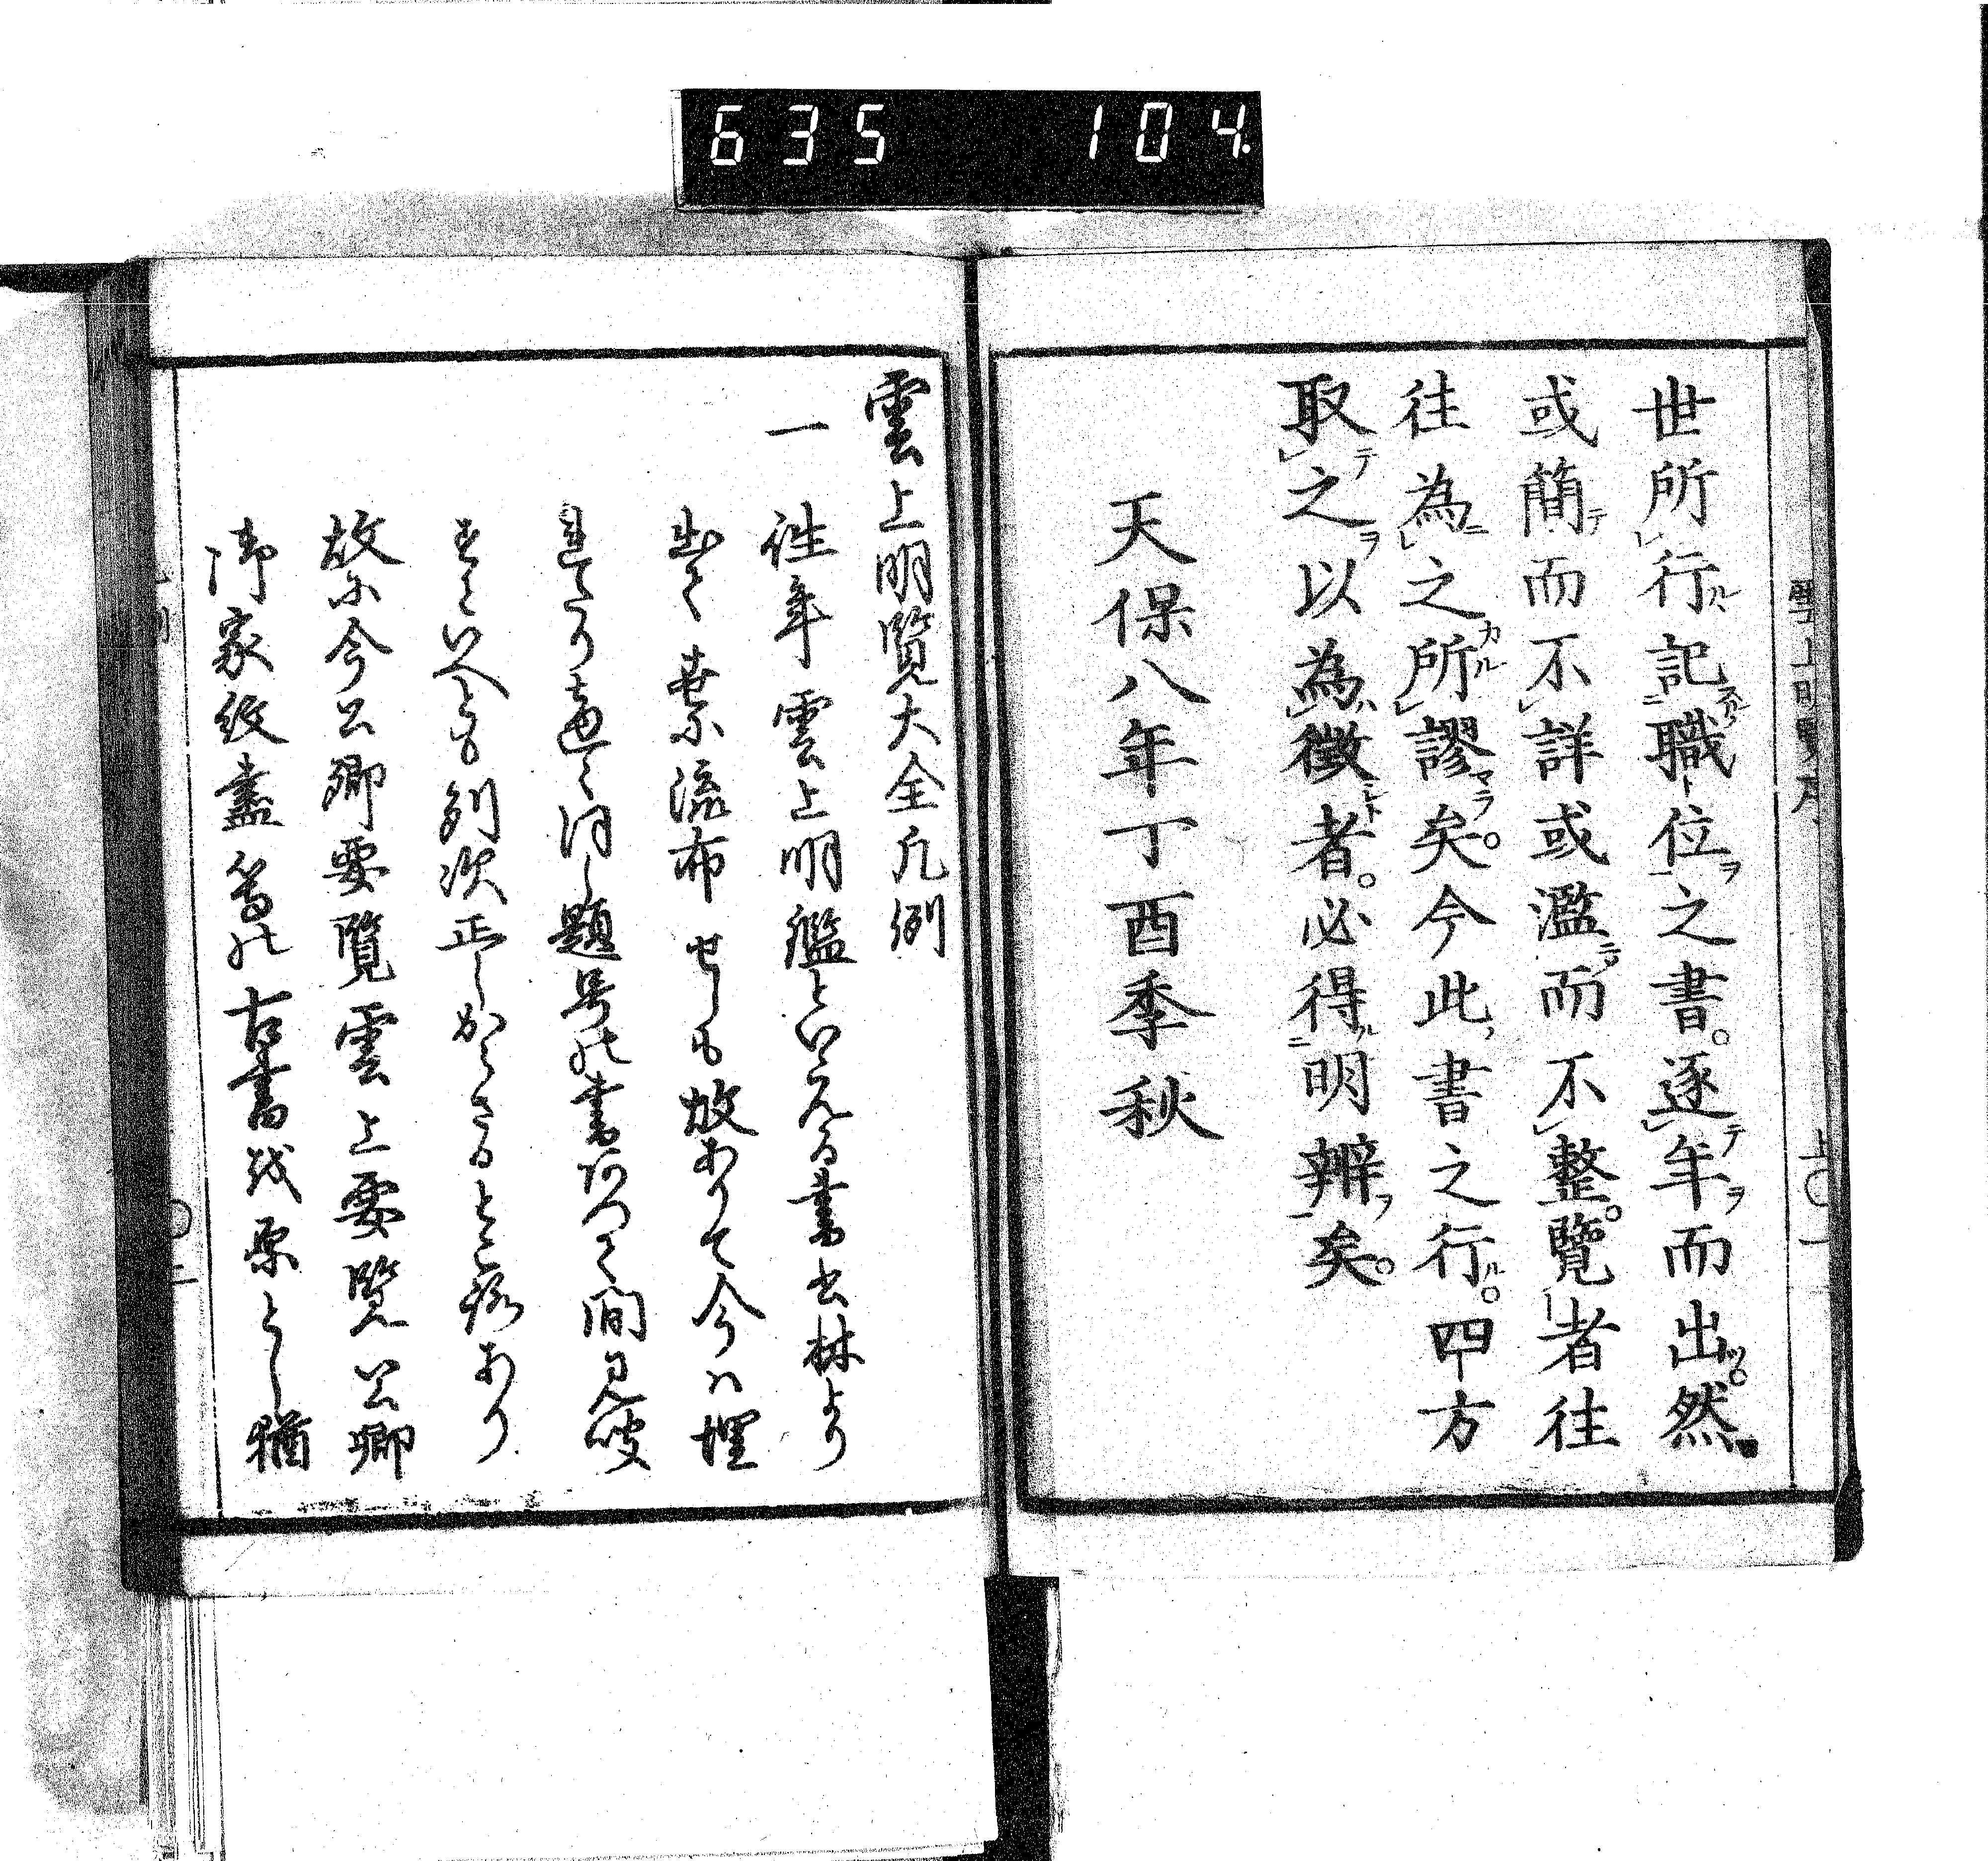 635 104.
世所行記職位之書。逐年而出。然
或簡而不詳或濫而不整。覽者往
往為之所謬矣。今此書之行。四方
取之以為徴者。必得明辨矣。
天保八年丁酉季秋
上〇一
雲上明覧大全凡例
一 往年雲上明鑑といへる書書林より
出て世に流布せしも故ありて今ハ埋
題号の書
といへとも列次正しからさるところあり
故に今公卿要覧雲上要覧公卿
御家紋盡等の古書を原とし猶
〇二